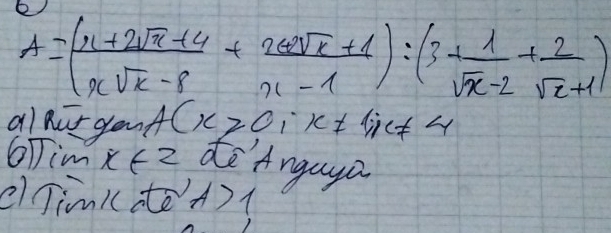 6)
A = (x+2√x+4 / x√x-8 + x+2√x+1 / x-1) : (3 + 1 / √x-2 + 2 / √x+1)
a) Rút gọn A (x ≥ 0; x ≠ 1; x ≠ 4
b) Tìm x ∈ Z để A nguyên
c) Tìm x để A > 1